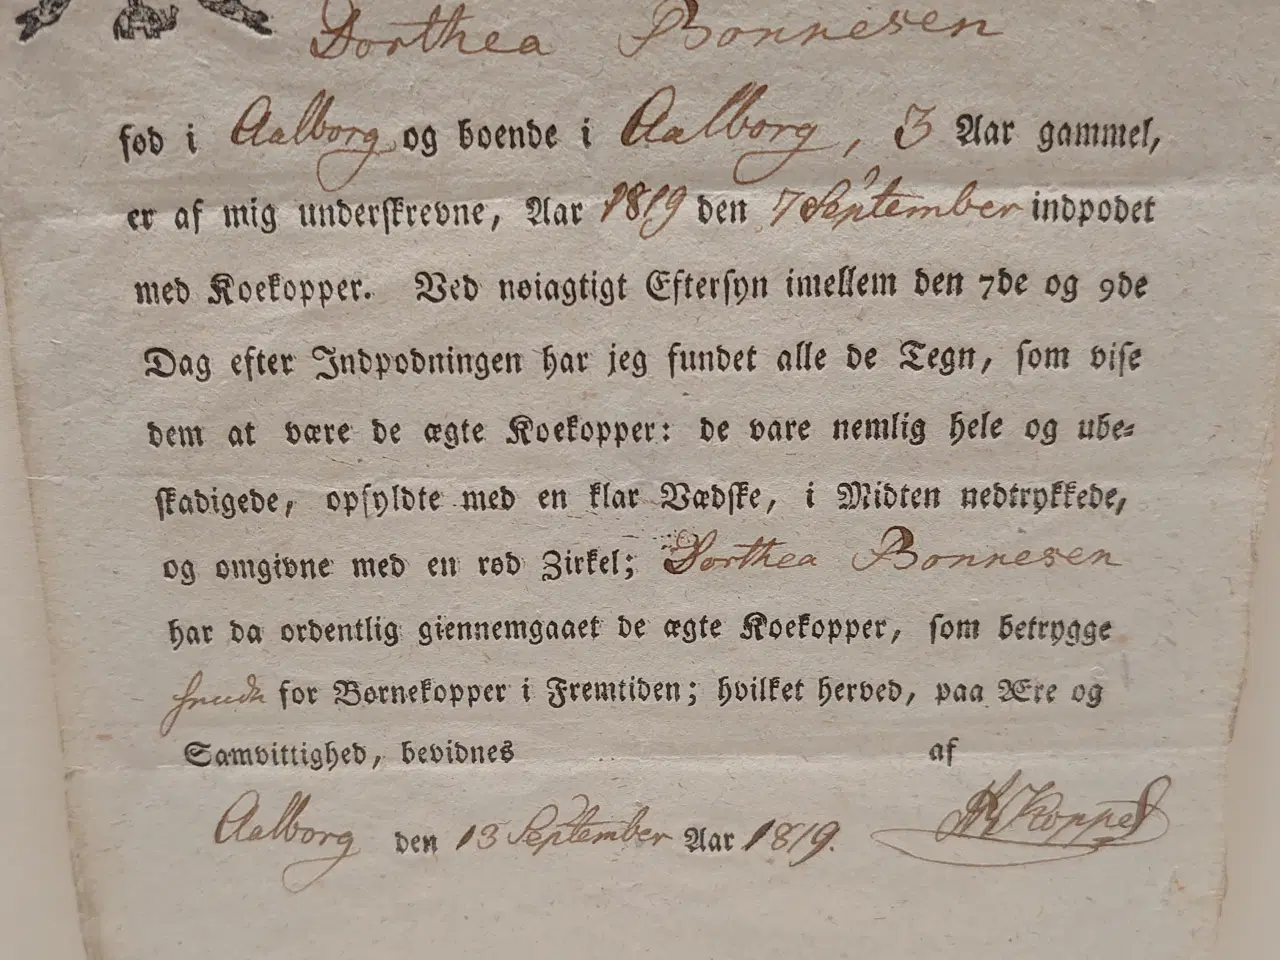 Dorthea Bonnesen
fød i Aalborg og boende i Aalborg, 3 Aar gammel,
er af mig underskrevne, Aar 1819 den 7 September indpodet
med Koekopper. Ved nøiagtigt Eftersyn imellem den 7de og 9de
Dag efter Indpodningen har jeg fundet alle de Tegn, som vise
dem at være de ægte Koekopper: de vare nemlig hele og ube-
skadigede, opfyldte med en klar Vædske, i Midten nedtrykkede,
og omgivne med en rød Zirkel; Dorthea Bonnesen
har da ordentlig giennemgaaet de ægte Koekopper, som betrygge
for Børnekopper i Fremtiden; hvilket herved, paa Ære og
Samvittighed, bevidnes af
Aalborg den 13 September Aar 1819. Koppel